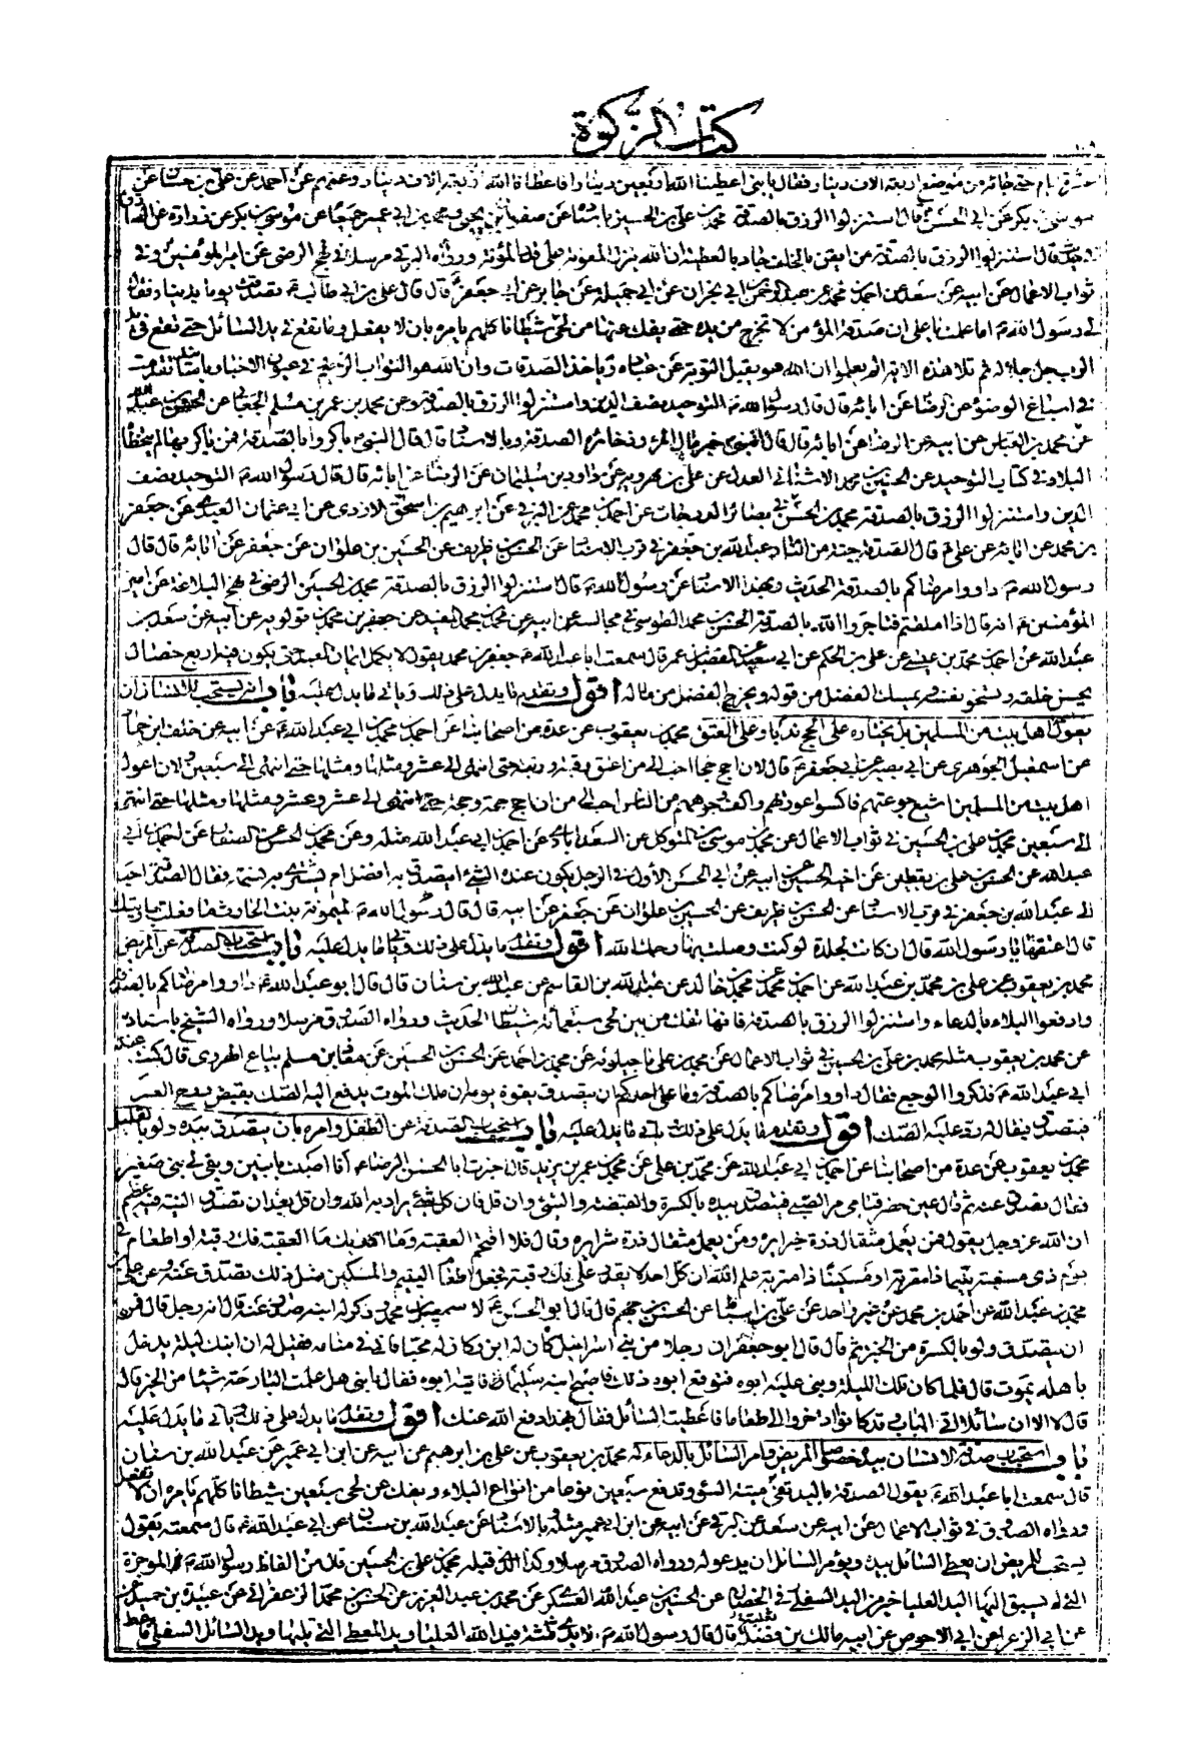 كتاب الزكوة
عشرة ايام حتى جائه من موضع اربعة الاف دينار فقال يا بنى اعطينا الله اربعين دينارا فاعطانا الله اربعة الاف دينار وعنهم عن احمد عن على بن حسان عن
موسى بن بكر عن ابى الحسن ع قال استنزلوا الرزق بالصدقة محمد بن على بن الحسين باسناده عن صفوان بن يحيى ومحمد بن ابى عمير جميعا عن موسى بن بكر عن زرارة عن الصادق
قال استنزلوا الرزق بالصدقة من ايقن بالخلف جاد بالعطية ان الله ينزل المعونة على قدر المؤنة ورواه الرضى مرسلا في نهج عن امير المؤمنين وفى
ثواب الاعمال عن ابيه عن سعد عن احمد بن محمد عن عبد الرحمن بن ابى نجران عن ابى جميلة عن جابر عن ابى جعفر ع قال قال على بن ابى طالب ع تصدقت يوما بدينار فقال
لى رسول الله ص اما علمت يا على ان صدقة المؤمن لا تخرج من يده حتى يفك عنها من لحى شيطانا كلهم يامره بان لا يفعل وما تقع في يد السائل حتى تقع في يد
الرب جل جلاله ثم تلا هذه الاية الم يعلموا ان الله هو يقبل التوبة عن عباده وياخذ الصدقات وان الله هو التواب الرحيم في عيون الاخبار باسانيد تقدمت
في اسباغ الوضوء عن الرضا عن ابائه قال قال رسول الله ص التوحيد نصف الدين واستنزلوا الرزق بالصدقة وعن محمد بن عمر بن مسلم الجعابى عن الحسن بن عبد الله
عن محمد بن العباس عن ابيه عن الرضا عن ابائه قال قال النبى ص خير مال المرء وذخائره الصدقة وبالاسناد قال قال النبى ص باكروا بالصدقة فمن باكر بها لم يتخطاها
البلاء في كتاب التوحيد عن الحسين بن محمد الاشنانى العدل عن على بن مهرويه عن داود بن سليمان عن الرضا عن ابائه قال قال رسول الله ص التوحيد نصف
الدين واستنزلوا الرزق بالصدقة محمد بن الحسن في بصائر الدرجات عن احمد بن محمد عن البرقى عن ابرهيم بن اسحق الازدى عن ابى عثمان العبدى عن جعفر
بن محمد عن ابائه عن على ع قال الصدقة جنة من النار عبد الله بن جعفر في قرب الاسناد عن الحسن بن ظريف عن الحسين بن علوان عن جعفر عن ابائه قال قال
رسول الله ص داووا مرضاكم بالصدقة الحديث وبهذا الاسناد عن رسول الله ص قال استنزلوا الرزق بالصدقة محمد بن الحسين الرضى في نهج البلاغة عن امير
المؤمنين ع انه قال اذا املقتم فتاجروا الله بالصدقة الحسن بن محمد الطوسى في مجالسه عن ابيه عن محمد بن محمد المفيد عن جعفر بن محمد بن قولويه عن ابيه عن سعد بن
عبد الله عن احمد بن محمد بن عيسى عن على بن الحكم عن ابى سعيد عن المفضل بن عمر قال سمعت ابا عبد الله ع جعفر بن محمد يقول لا يكمل ايمان العبد حتى يكون فيه اربع خصال
يحسن خلقه وتسخو نفسه ويمسك الفضل من قوله ويخرج الفضل من ماله اقول وتقدم ما يدل على ذلك وياتى ما يدل عليه باب انه يستحب للانسان ان
يعول اهل بيت من المسلمين بل يختاره على الحج ندبا وعلى العتق محمد بن يعقوب عن عدة من اصحابنا عن احمد بن محمد بن ابى عبد الله عن ابيه عن خلف بن حماد
عن اسمعيل الجوهرى عن ابى بصير عن ابى جعفر ع قال لان احج حجة احب الى من اعتق رقبة ورقبة حتى انتهى الى عشر ومثلها ومثلها حتى انتهى الى سبعين ولان اعول
اهل بيت من المسلمين اشبع جوعتهم فاكسوا عورتهم واكف وجوههم عن الناس احب الى من ان احج حجة وحجة حتى انتهى الى عشر وعشر ومثلها ومثلها حتى انتهى
الى سبعين محمد بن على بن الحسين في ثواب الاعمال عن محمد بن موسى بن المتوكل عن السعد ابادى عن احمد بن ابى عبد الله مثله وعن محمد بن الحسن عن الصفار عن احمد بن ابى
عبد الله عن الحسن بن على بن يقطين عن اخيه الحسين عن ابيه عن ابى الحسن الاول في الرجل يكون عنده الشئ ايتصدق به افضل ام يشترى به نسمة فقال الصدقة احب
الى عبد الله بن جعفر في قرب الاسناد عن الحسن بن ظريف عن الحسين بن علوان عن جعفر عن ابيه قال قال رسول الله ص لميمونة بنت الحارث ما فعلت جاريتك
قالت اعتقتها يا رسول الله قال ان كانت لجلدة لو كنت وصلت بها رحمك الله اقول وتقدم ما يدل على ذلك وياتى ما يدل عليه باب استحباب الصدقة عن المريض
محمد بن يعقوب عن على بن محمد بن عبد الله عن احمد بن محمد عن محمد بن خالد عن عبد الله بن القاسم عن عبد الله بن سنان قال قال ابو عبد الله ع داووا مرضاكم بالصدقة
وادفعوا البلاء بالدعاء واستنزلوا الرزق بالصدقة فانها تفك من بين لحى سبعمائة شيطان الحديث ورواه الصدوق مرسلا ورواه الشيخ باسناده
عن محمد بن يعقوب مثله محمد بن على بن الحسين في ثواب الاعمال عن محمد بن على ماجيلويه عن محمد بن احمد عن الحسن بن الحسين عن معاذ بن مسلم بياع الهروى قال كنت عند
ابى عبد الله ع فذكروا الوجع فقال داووا مرضاكم بالصدقة وما على احدكم ان يتصدق بقوت يومه ان ملك الموت يدفع اليه الصك بقبض روح العبد
فيتصدق فيقال له رد عليه الصك اقول وتقدم ما يدل على ذلك وياتى ما يدل عليه باب استحباب الصدقة عن الطفل وامره بان يتصدق بيده ولو بالقليل
محمد بن يعقوب عن عدة من اصحابنا عن احمد بن ابى عبد الله عن محمد بن على عن محمد بن عمر بن يزيد قال خبرت ابا الحسن الرضا ع انى اصبت بابنين وبقى لى بنى صغير
فقال تصدق عنه ثم قال حين حضر قيامى مر الصبى فليتصدق بيده بالكسرة والقبضة والشئ وان قل فان كل شئ يراد به الله وان قل بعد ان تصدق النية فيه عظيم
ان الله عز وجل يقول فمن يعمل مثقال ذرة خيرا يره ومن يعمل مثقال ذرة شرا يره وقال فلا اقتحم العقبة وما ادريك ما العقبة فك رقبة او اطعام في
يوم ذى مسغبة يتيما ذا مقربة او مسكينا ذا متربة علم الله ان كل احد لا يقدر على فك رقبة فجعل اطعام اليتيم والمسكين مثل ذلك تصدق عنه وعن على بن
محمد بن عبد الله عن احمد بن محمد عن غير واحد عن على بن اسباط عن الحسن بن جهم قال قال ابو الحسن ع لاسمعيل بن محمد وذكر له ابنه صدق عنه قال انه رجل قال فمره
ان يتصدق ولو بالكسرة من الخبز ثم قال قال ابو جعفر ان رجلا من بنى اسرائيل كان له ابن وكان له محبا فاتى في منامه فقيل له ان ابنك ليلة يدخل
باهله يموت قال فلما كان تلك الليلة وبنى عليه ابوه فتوقع ابوه ذلك فاصبح ابنه سليما فاتيه ابوه فقال يا بنى هل عملت البارحة شيئا من الخير قال
قال لا الا ان سائلا اتى الباب وقد كانوا ادخروا لى طعاما فاعطيته السائل فقال بهذا دفع الله عنك اقول وتقدم ما يدل على ذلك وياتى ما يدل عليه
باب استحباب صدقة الانسان بيده خصوصا المريض وامر السائل بالدعاء له محمد بن يعقوب عن على بن ابرهيم عن ابيه عن ابن ابى عمير عن عبد الله بن سنان
قال سمعت ابا عبد الله ع يقول الصدقة باليد تقى ميتة السوء وتدفع سبعين نوعا من انواع البلاء وتفك عن لحى سبعين شيطانا كلهم يامره ان لا تفعل
ورواه الصدوق في ثواب الاعمال عن ابيه عن سعد عن البرقى عن ابيه عن ابن ابى عمير مثله بالاسناد عن عبد الله بن سنان عن ابى عبد الله ع قال سمعته يقول
يستحب للمريض ان يعطى السائل بيده ويؤمر السائل ان يدعو له ورواه الصدوق مرسلا وكذا الذى قبله محمد بن على بن الحسين قال من الفاظ رسول الله ص الموجزة
التى لم يسبق اليها اليد العليا خير من اليد السفلى في الخصال عن الحسن بن عبد الله العسكرى عن محمد بن عبد العزيز عن الحسن بن محمد الزعفرانى عن عبيدة بن حميد
عن ابى الزعراء عن ابى الاحوص عن ابيه مالك بن نضلة قال قال رسول الله ص الايدى ثلثة فيد الله العليا ويد المعطى التى تليها ويد السائل السفلى فاعط